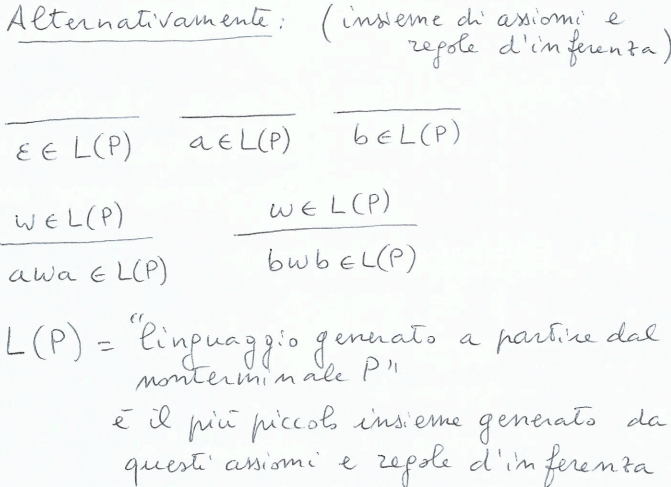 Alternativamente: (insieme di assiomi e
regole d'inferenza)
ε ∈ L(P) a ∈ L(P) b ∈ L(P)
w ∈ L(P) w ∈ L(P)
awa ∈ L(P) bwb ∈ L(P)
L(P) = "linguaggio generato a partire dal
nonterminale P"
è il più piccolo insieme generato da
questi assiomi e regole d'inferenza